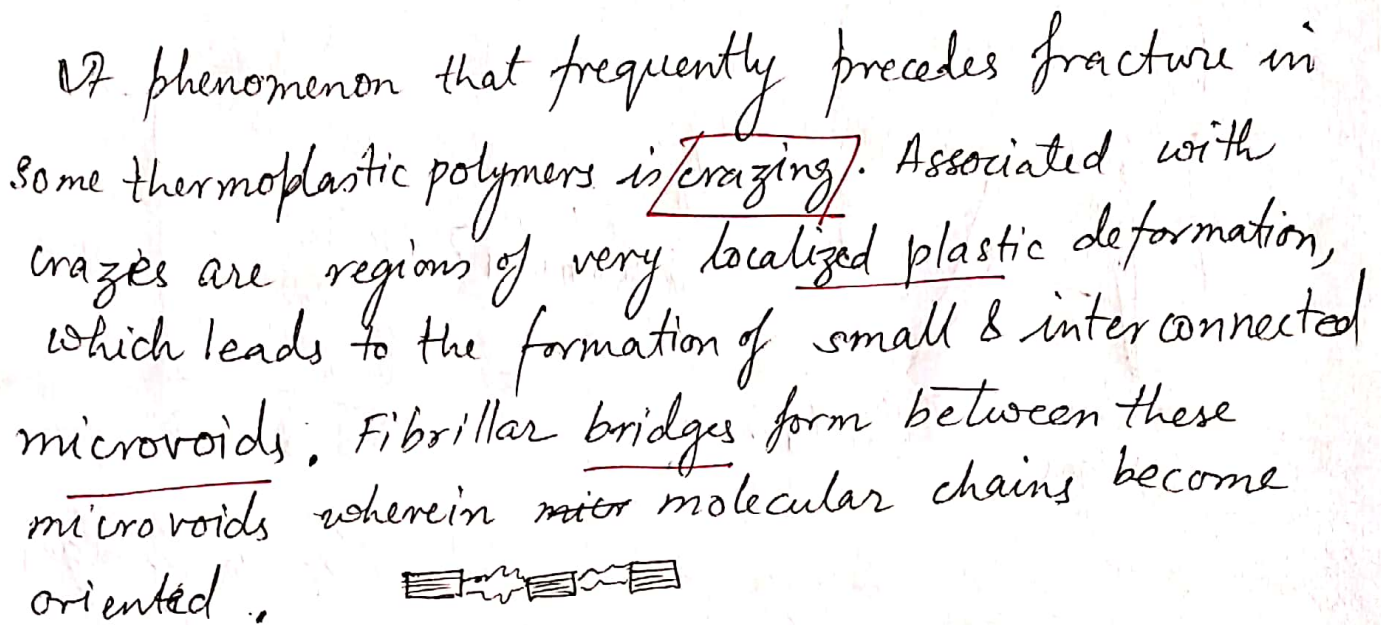 A phenomenon that frequently precedes fracture in
some thermoplastic polymers is crazing. Associated with
crazes are regions of very localized plastic deformation,
which leads to the formation of small & interconnected
microvoids. Fibrillar bridges form between these
microvoids wherein molecular chains become
oriented.